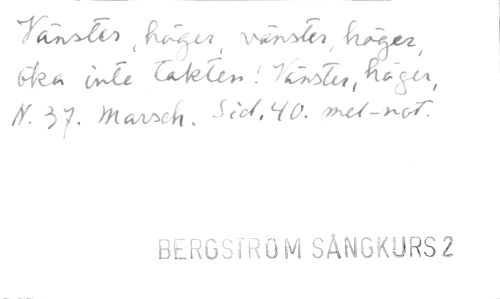 Vänster, höger, vänster, höger,
öka inte takten! Vänster, höger,
N. 37. Marsch. Sid. 40. mel-not.
BERGSTRÖM SÅNGKURS 2